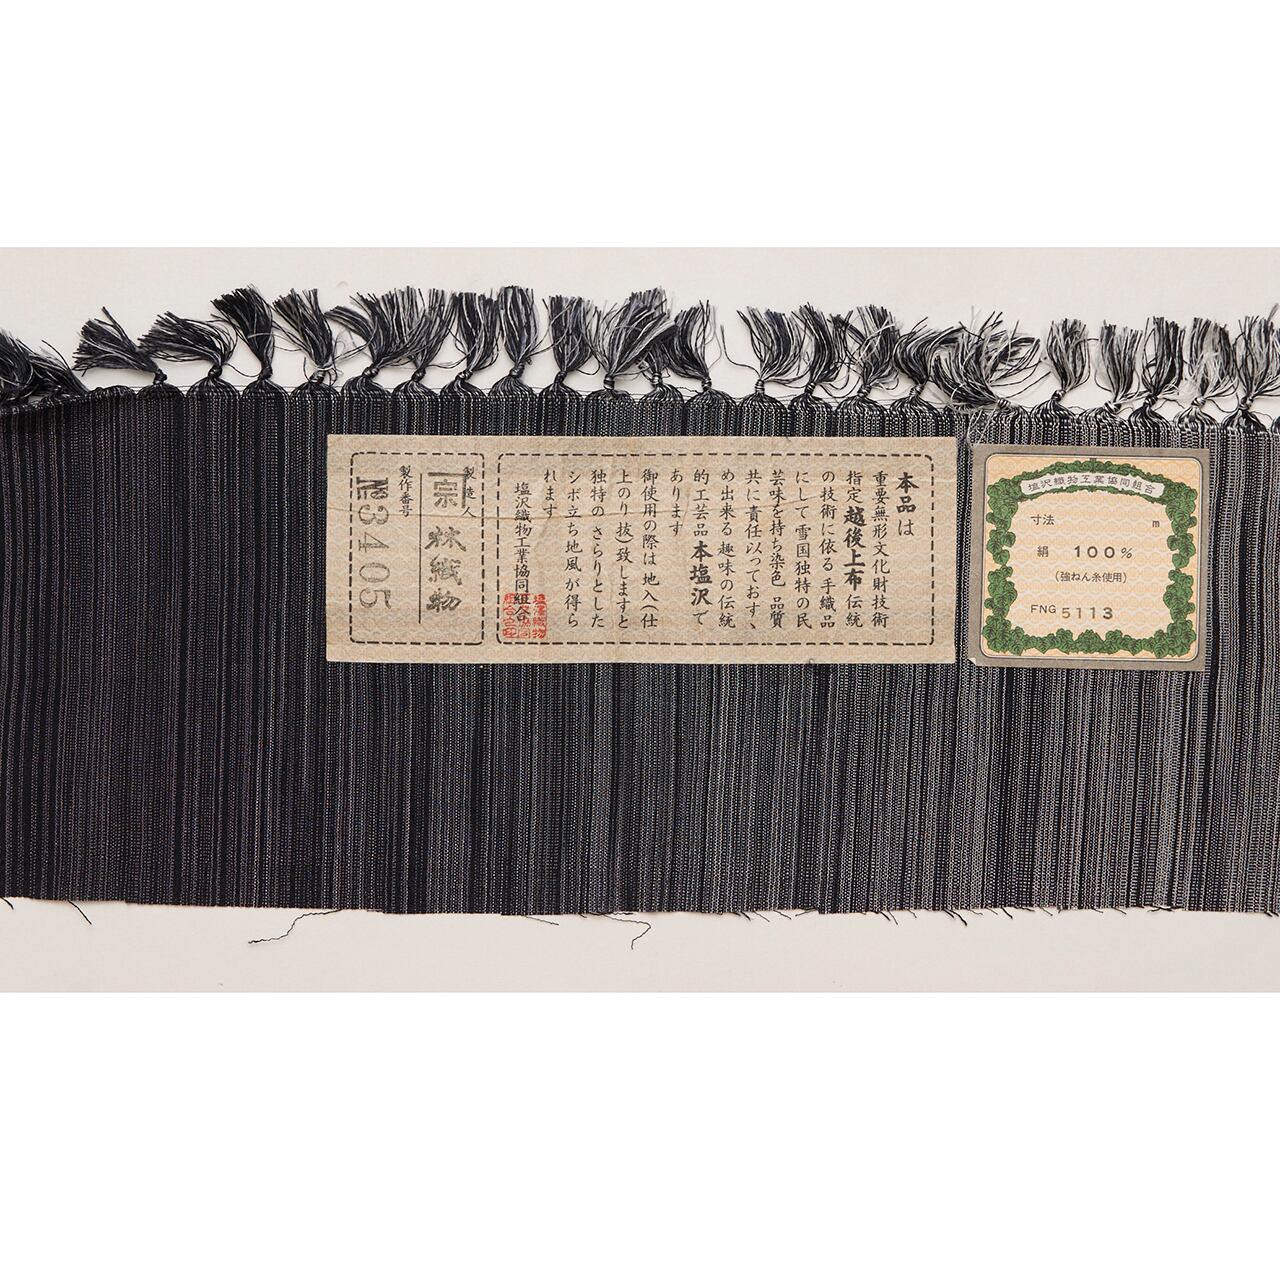 本品は
重要無形文化財技術
指定越後上布伝統
の技術に依る手織品
にして雪国独特の民
芸味を持ち染色品質
共に責任以っておすゝ
め出来る趣味の伝統
的工芸品本塩沢で
あります
御使用の際は地入(仕
上のり抜)致しますと
独特のさらりとした
シボ立ち地風が得ら
れます
塩沢織物工業協同組合
製造人
宗
織物
製作番号
№3405
塩沢織物工業協同組合
寸法 m
絹 100%
(強ねん糸使用)
FNG 5113